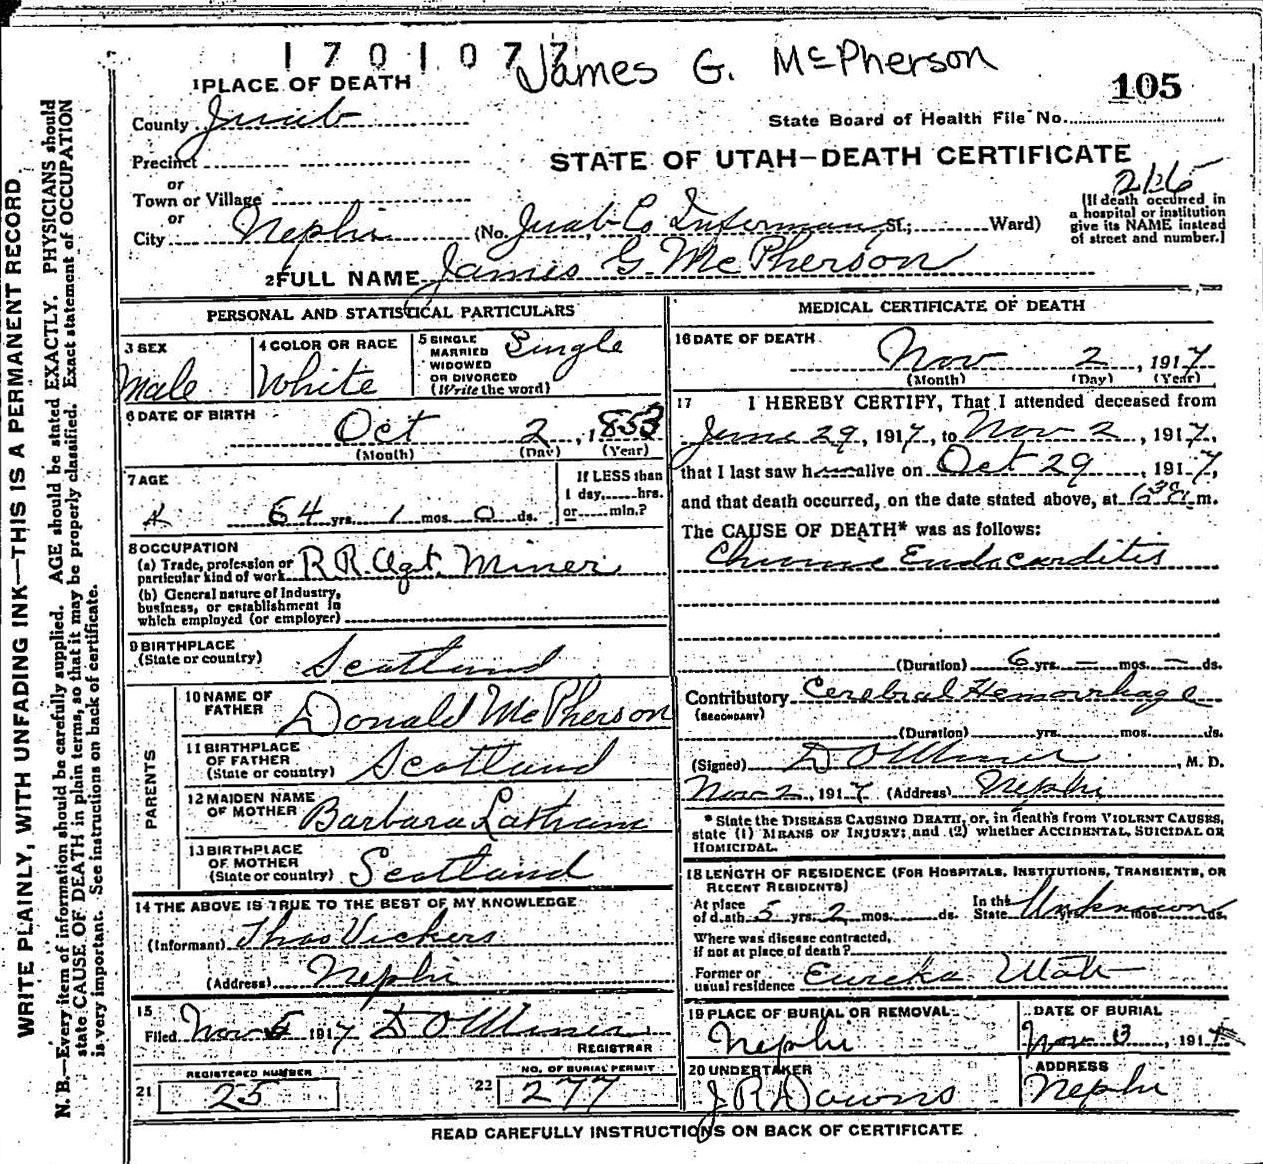 1701077
James G. McPherson
105
1 PLACE OF DEATH
County Juab
State Board of Health File No.
Precinct
STATE OF UTAH—DEATH CERTIFICATE
or
Town or Village
or
City Nephi (No. Juab Co Infirmary St.; Ward)
[If death occurred in
a hospital or institution
give its NAME instead
of street and number.]
2 FULL NAME James G McPherson
PERSONAL AND STATISTICAL PARTICULARS
3 SEX
Male
4 COLOR OR RACE
White
5 SINGLE
MARRIED
WIDOWED
OR DIVORCED
(Write the word)
Single
6 DATE OF BIRTH
Oct 2, 1853
(Month) (Day) (Year)
7 AGE
64 yrs. 1 mos. 0 ds.
If LESS than
1 day, hrs.
or min.?
8 OCCUPATION
(a) Trade, profession or
particular kind of work R.R. Agt. Miner
(b) General nature of Industry,
business, or establishment in
which employed (or employer)
9 BIRTHPLACE
(State or country) Scotland
PARENTS
10 NAME OF
FATHER Donald McPherson
11 BIRTHPLACE
OF FATHER
(State or country) Scotland
12 MAIDEN NAME
OF MOTHER Barbara Latham
13 BIRTHPLACE
OF MOTHER
(State or country) Scotland
14 THE ABOVE IS TRUE TO THE BEST OF MY KNOWLEDGE
(Informant) Thos Vickers
(Address) Nephi
15
Filed Nov 5 1917 D O Miner
REGISTRAR
21 REGISTERED NUMBER
25
22 NO. OF BURIAL PERMIT
277
MEDICAL CERTIFICATE OF DEATH
16 DATE OF DEATH
Nov 2, 1917
(Month) (Day) (Year)
17 I HEREBY CERTIFY, That I attended deceased from
June 29, 1917, to Nov 2, 1917,
that I last saw h alive on Oct 29, 1917,
and that death occurred, on the date stated above, at m.
The CAUSE OF DEATH* was as follows:
Chronic Endocarditis
(Duration) 6 yrs. – mos. – ds.
Contributory Cerebral Hemorrhage
(SECONDARY)
(Duration) yrs. mos. ds.
(Signed) D O Miner, M. D.
Nov 2, 1917 (Address) Nephi
* State the DISEASE CAUSING DEATH, or, in deaths from VIOLENT CAUSES,
state (1) MEANS OF INJURY; and (2) whether ACCIDENTAL, SUICIDAL OR
HOMICIDAL.
18 LENGTH OF RESIDENCE (FOR HOSPITALS, INSTITUTIONS, TRANSIENTS, OR
RECENT RESIDENTS)
At place
of death 5 yrs. 2 mos. ds. In the State Unknown yrs. mos. ds.
Where was disease contracted,
if not at place of death?
Former or
usual residence Eureka Utah
19 PLACE OF BURIAL OR REMOVAL
Nephi
DATE OF BURIAL
Nov 3, 1917
20 UNDERTAKER
J R Downs
ADDRESS
Nephi
READ CAREFULLY INSTRUCTIONS ON BACK OF CERTIFICATE
WRITE PLAINLY, WITH UNFADING INK—THIS IS A PERMANENT RECORD
N. B.—Every item of information should be carefully supplied. AGE should be stated EXACTLY. PHYSICIANS should
state CAUSE OF DEATH in plain terms, so that it may be properly classified. Exact statement of OCCUPATION
is very important. See instructions on back of certificate.